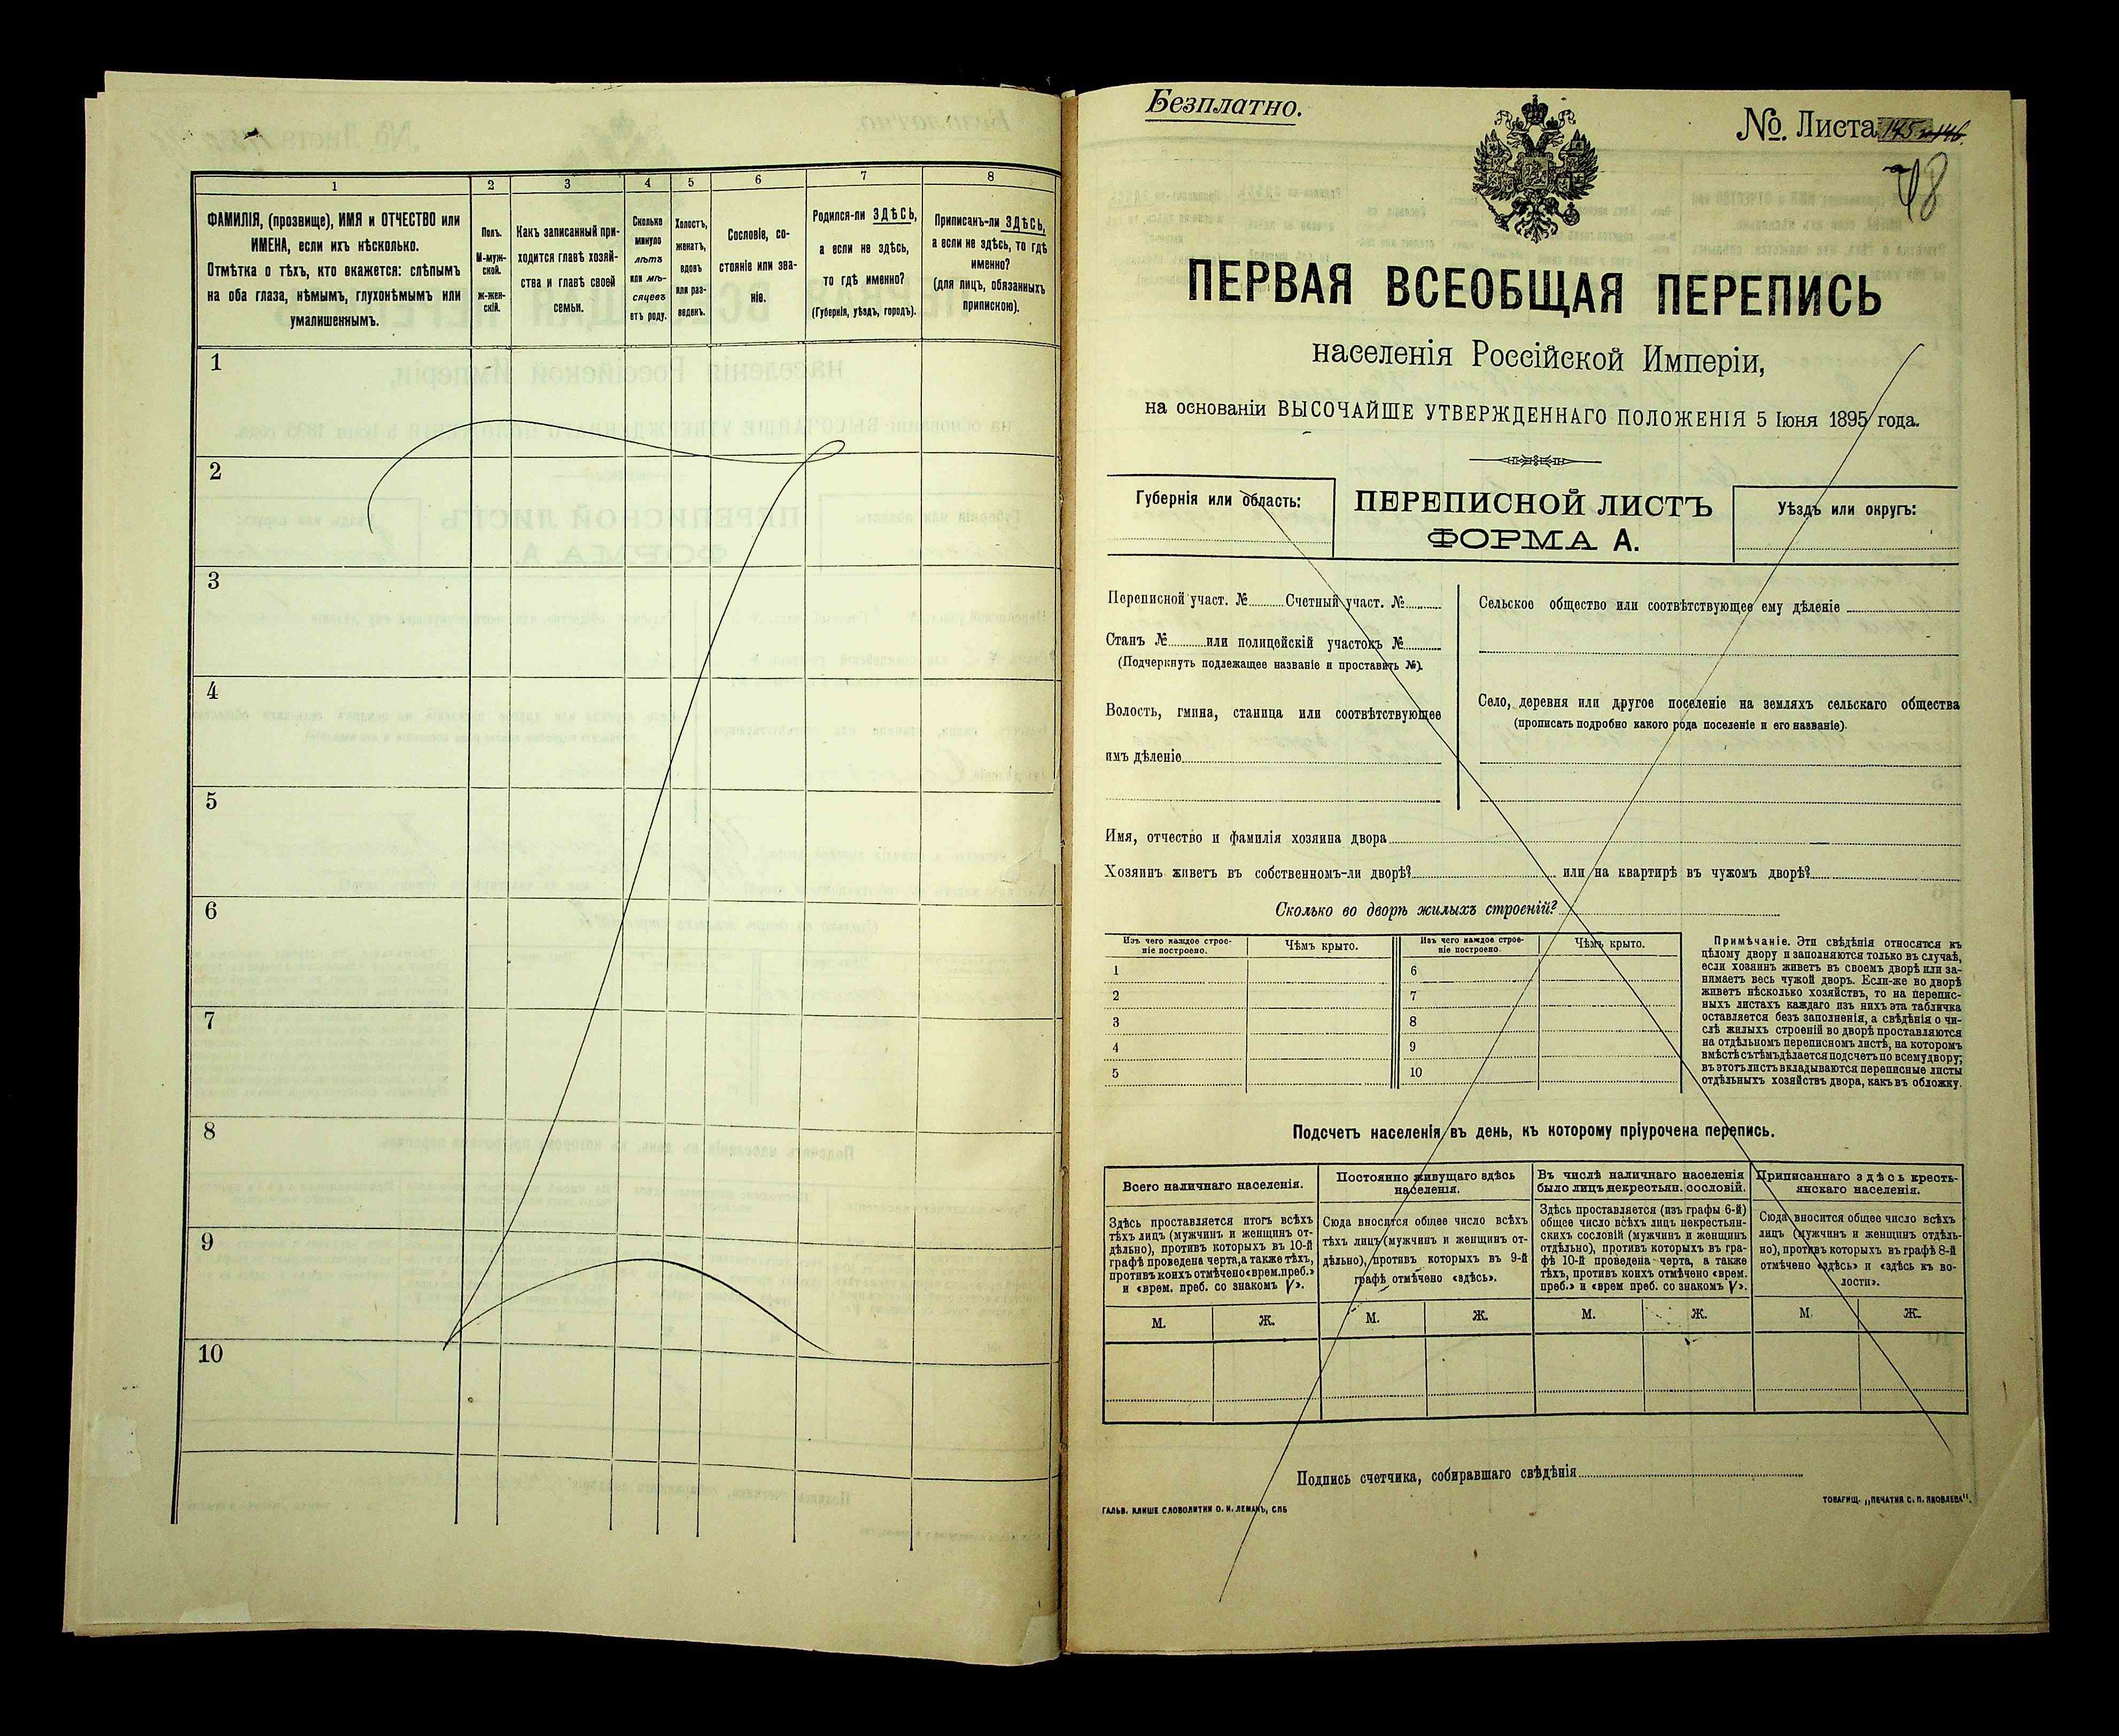 1 2 3 4 5 6 7 8
ФАМИЛІЯ, (прозвище), ИМЯ и ОТЧЕСТВО или
ИМЕНА, если ихъ нѣсколько.
Отмѣтка о тѣхъ, кто окажется: слѣпымъ
на оба глаза, нѣмымъ, глухонѣмымъ или
умалишеннымъ.
Полъ.
М-муж-
ской.
ж-жен-
скій.
Какъ записанный при-
ходится главѣ хозяй-
ства и главѣ своей
семьи.
Сколько
минуло
лѣтъ
или мѣ-
сяцевъ
отъ роду.
Холостъ,
женатъ,
вдовъ
или раз-
веденъ.
Сословіе, со-
стояніе или зва-
ніе.
Родился-ли ЗДѢСЬ,
а если не здѣсь,
то гдѣ именно?
(Губернія, уѣздъ, городъ).
Приписанъ-ли ЗДѢСЬ,
а если не здѣсь, то гдѣ
именно?
(для лицъ, обязанныхъ
припискою).
1
2
3
4
5
6
7
8
9
10
Безплатно.
№ Листа 145 и 146.
ПЕРВАЯ ВСЕОБЩАЯ ПЕРЕПИСЬ
населенія Россійской Имперіи,
на основаніи ВЫСОЧАЙШЕ УТВЕРЖДЕННАГО ПОЛОЖЕНІЯ 5 Іюня 1895 года.
Губернія или область:
ПЕРЕПИСНОЙ ЛИСТЪ
ФОРМА А.
Уѣздъ или округъ:
Переписной участ. № Счетный участ. №
Станъ № или полицейскій участокъ №
(Подчеркнуть подлежащее названіе и проставить №).
Волость, гмина, станица или соотвѣтствующее
имъ дѣленіе
Сельское общество или соотвѣтствующее ему дѣленіе
Село, деревня или другое поселеніе на земляхъ сельскаго общества
(прописать подробно какого рода поселеніе и его названіе).
Имя, отчество и фамилія хозяина двора
Хозяинъ живетъ въ собственномъ-ли дворѣ? или на квартирѣ въ чужомъ дворѣ?
Сколько во дворѣ жилыхъ строеній?
Изъ чего каждое строе-
ніе построено.
Чѣмъ крыто.
Изъ чего каждое строе-
ніе построено.
Чѣмъ крыто.
1 6
2 7
3 8
4 9
5 10
Примѣчаніе. Эти свѣдѣнія относятся къ
цѣлому двору и заполняются только въ случаѣ,
если хозяинъ живетъ въ своемъ дворѣ или за-
нимаетъ весь чужой дворъ. Если-же во дворѣ
живетъ нѣсколько хозяйствъ, то на перепис-
ныхъ листахъ каждаго изъ нихъ эта табличка
оставляется безъ заполненія, а свѣдѣнія о чи-
слѣ жилыхъ строеній во дворѣ проставляются
на отдѣльномъ переписномъ листѣ, на которомъ
вмѣстѣ съ тѣмъ дѣлается подсчетъ по всему двору;
въ этотъ листъ вкладываются переписные листы
отдѣльныхъ хозяйствъ двора, какъ въ обложку.
Подсчетъ населенія въ день, къ которому пріурочена перепись.
Всего наличнаго населенія.
Постоянно живущаго здѣсь
населенія.
Въ числѣ наличнаго населенія
было лицъ некрестьян. сословій.
Приписаннаго здѣсь кресть-
янскаго населенія.
Здѣсь проставляется итогъ всѣхъ
тѣхъ лицъ (мужчинъ и женщинъ от-
дѣльно), противъ которыхъ въ 10-й
графѣ проведена черта, а также тѣхъ,
противъ коихъ отмѣчено «врем. преб.»
и «врем. преб. со знакомъ V».
Сюда вносится общее число всѣхъ
тѣхъ лицъ (мужчинъ и женщинъ от-
дѣльно), противъ которыхъ въ 9-й
графѣ отмѣчено «здѣсь».
Здѣсь проставляется (изъ графы 6-й)
общее число всѣхъ лицъ некрестьян-
скихъ сословій (мужчинъ и женщинъ
отдѣльно), противъ которыхъ въ гра-
фѣ 10-й проведена черта, а также
тѣхъ, противъ коихъ отмѣчено «врем.
преб.» и «врем преб. со знакомъ V».
Сюда вносится общее число всѣхъ
лицъ (мужчинъ и женщинъ отдѣль-
но), противъ которыхъ въ графѣ 8-й
отмѣчено «здѣсь» и «здѣсь къ во-
лости».
М. Ж. М. Ж. М. Ж. М. Ж.
Подпись счетчика, собиравшаго свѣдѣнія
ГАЛЬВ. КЛИШЕ СЛОВОЛИТНИ О. И. ЛЕМАНЪ, СПБ
ТОВАРИЩ. „ПЕЧАТНЯ С. П. ЯКОВЛЕВА".